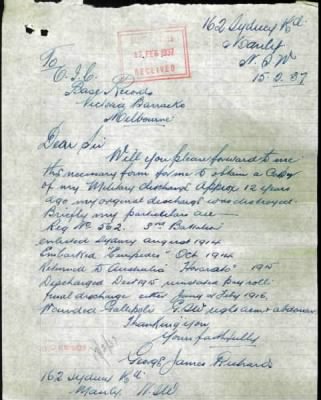 162 Sydney Rd.
Manly
N.S.W
15.2.37
17 FEB 1937
RECEIVED
To
O.I.C
Base Records
Victoria Barracks
Melbourne
Dear Sir
Will you please forward to me
the necessary form for me to obtain a Copy
of my Military discharge. Approx 12 years
ago my original discharge was destroyed.
Briefly my particulars are —
Reg No 562. 3rd Battalion
enlisted Sydney August 1914
Embarked "Euripides" Oct 1914
Returned to Australia 1915
Discharged Dec 1915 payroll
final discharge either Jany or Feby 1916.
Wounded Gallipoli G.S.W right abdomen
Thanking you
Yours faithfully
George James Richards
162 Sydney Rd.
Manly. N.S.W